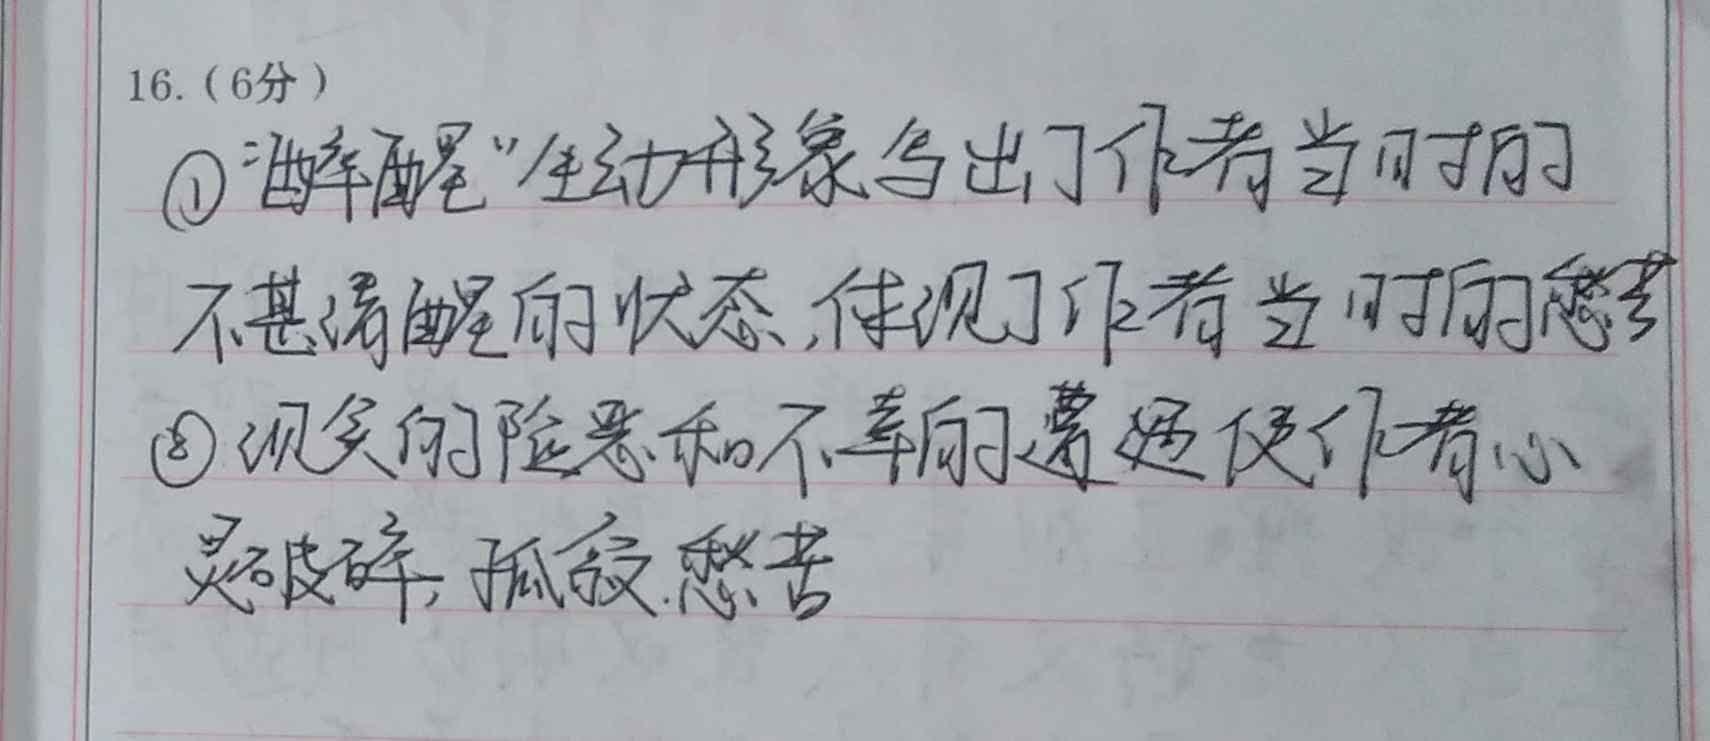 16.（6分）
①“醉醒”生动形象写出了作者当时的
不甚清醒的状态,体现了作者当时的愁苦
②现实的险恶和不幸的遭遇使作者心
灵破碎,孤寂.愁苦